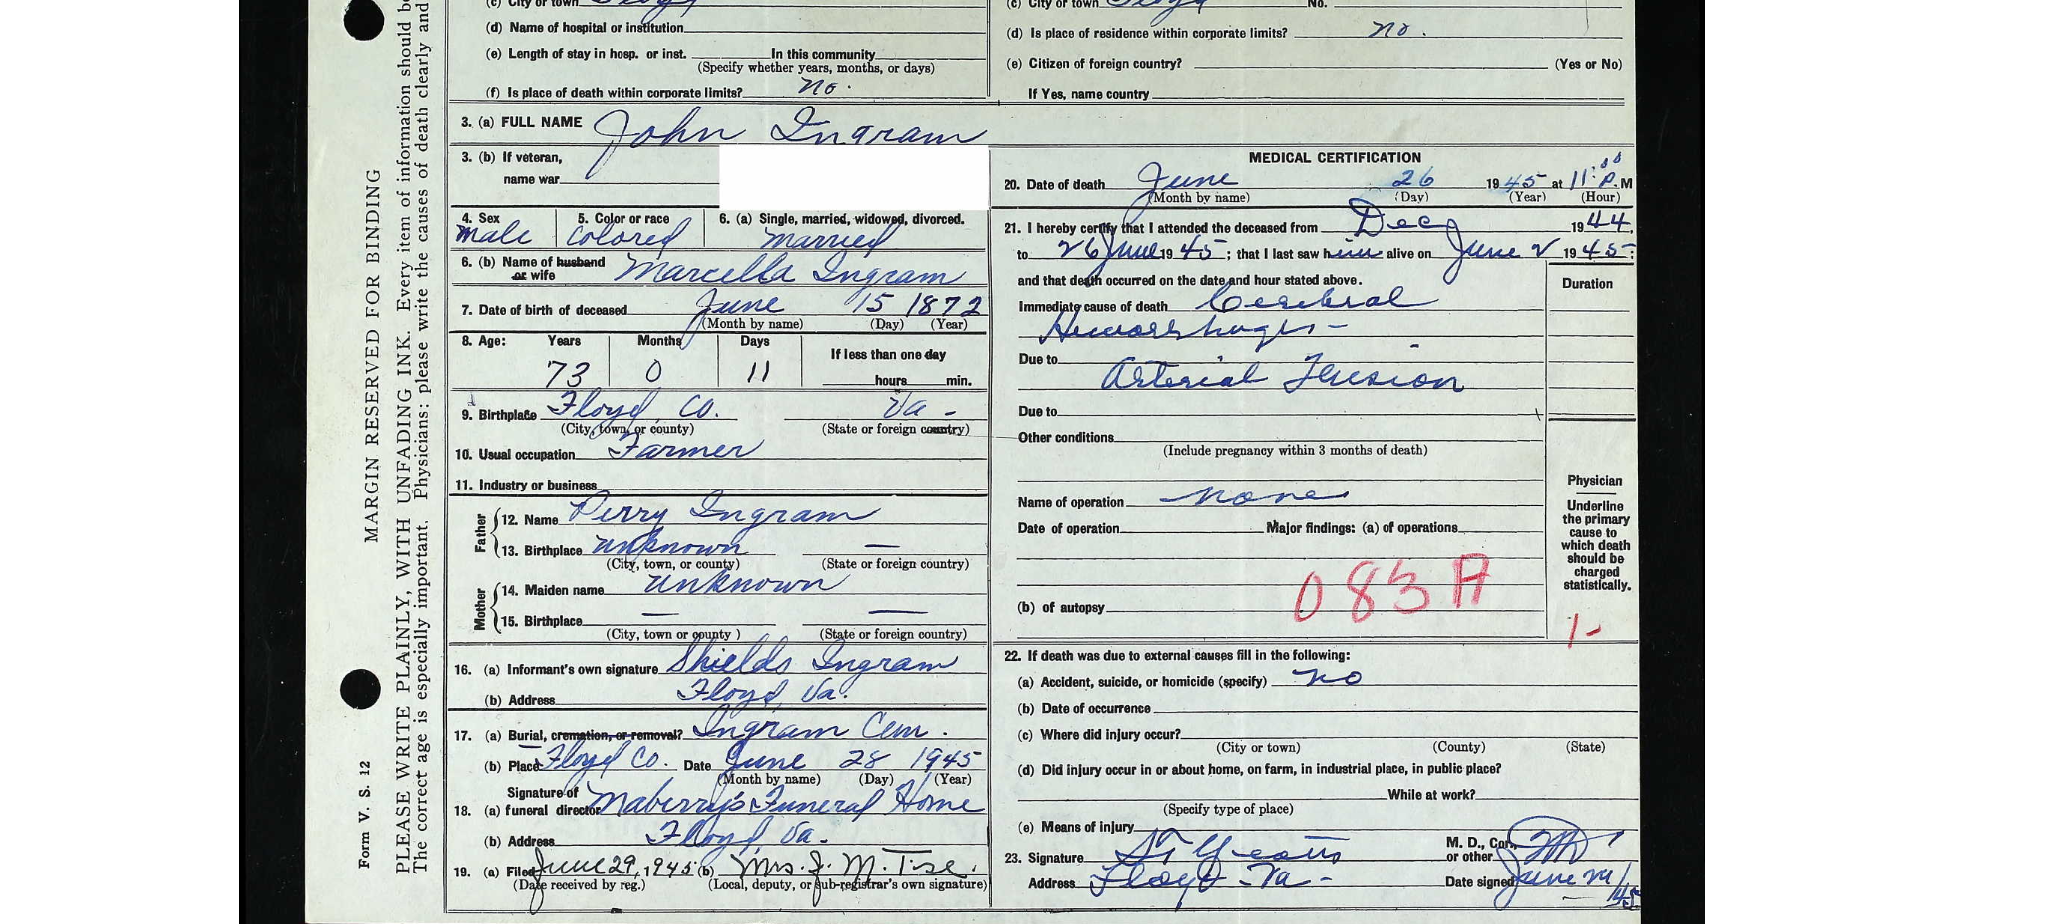 MARGIN RESERVED FOR BINDING
PLEASE WRITE PLAINLY, WITH UNFADING INK. Every item of information should be
The correct age is especially important. Physicians: please write the causes of death clearly and
Form V. S. 12
(c) City or town Floyd
(d) Name of hospital or institution
(e) Length of stay in hosp. or inst. In this community
(Specify whether years, months, or days)
(f) Is place of death within corporate limits? no.
(c) City or town Floyd No.
(d) Is place of residence within corporate limits? no.
(e) Citizen of foreign country? (Yes or No)
If Yes, name country
3. (a) FULL NAME John Ingram
3. (b) If veteran,
name war
4. Sex 5. Color or race 6. (a) Single, married, widowed, divorced.
male colored married
6. (b) Name of husband
or wife Marcella Ingram
7. Date of birth of deceased June 15 1872
(Month by name) (Day) (Year)
8. Age: Years Months Days If less than one day
73 0 11 hours min.
9. Birthplace Floyd Co. Va -
(City, town, or county) (State or foreign country)
10. Usual occupation Farmer
11. Industry or business
Father
12. Name Perry Ingram
13. Birthplace unknown —
(City, town, or county) (State or foreign country)
Mother
14. Maiden name unknown
15. Birthplace — —
(City, town or county ) (State or foreign country)
16. (a) Informant's own signature Shields Ingram
(b) Address Floyd Va.
17. (a) Burial, cremation, or removal? Ingram Cem.
(b) Place Floyd Co. Date June 28 1945
(Month by name) (Day) (Year)
Signature of
18. (a) funeral director Maberry's Funeral Home
(b) Address Floyd, Va.
19. (a) Filed June 29, 1945 (b) Mrs. J. M. Tise.
(Date received by reg.) (Local, deputy, or sub-registrar's own signature)
MEDICAL CERTIFICATION
20. Date of death June 26 1945 at 11:00 P.M
(Month by name) (Day) (Year) (Hour)
21. I hereby certify that I attended the deceased from Dec 1944,
to 26 June 1945; that I last saw him alive on June 2 1945;
and that death occurred on the date and hour stated above.
Duration
Immediate cause of death Cerebral
Hemorrhages -
Due to Arterial Tension
Due to
Other conditions
(Include pregnancy within 3 months of death)
Name of operation none
Date of operation Major findings: (a) of operations
083A
(b) of autopsy
Physician
Underline
the primary
cause to
which death
should be
charged
statistically.
1-
22. If death was due to external causes fill in the following:
(a) Accident, suicide, or homicide (specify) no
(b) Date of occurrence
(c) Where did injury occur?
(City or town) (County) (State)
(d) Did injury occur in or about home, on farm, in industrial place, in public place?
While at work?
(Specify type of place)
(e) Means of injury
23. Signature M. D., Cor.,
or other
Address Floyd - Va - Date signed June